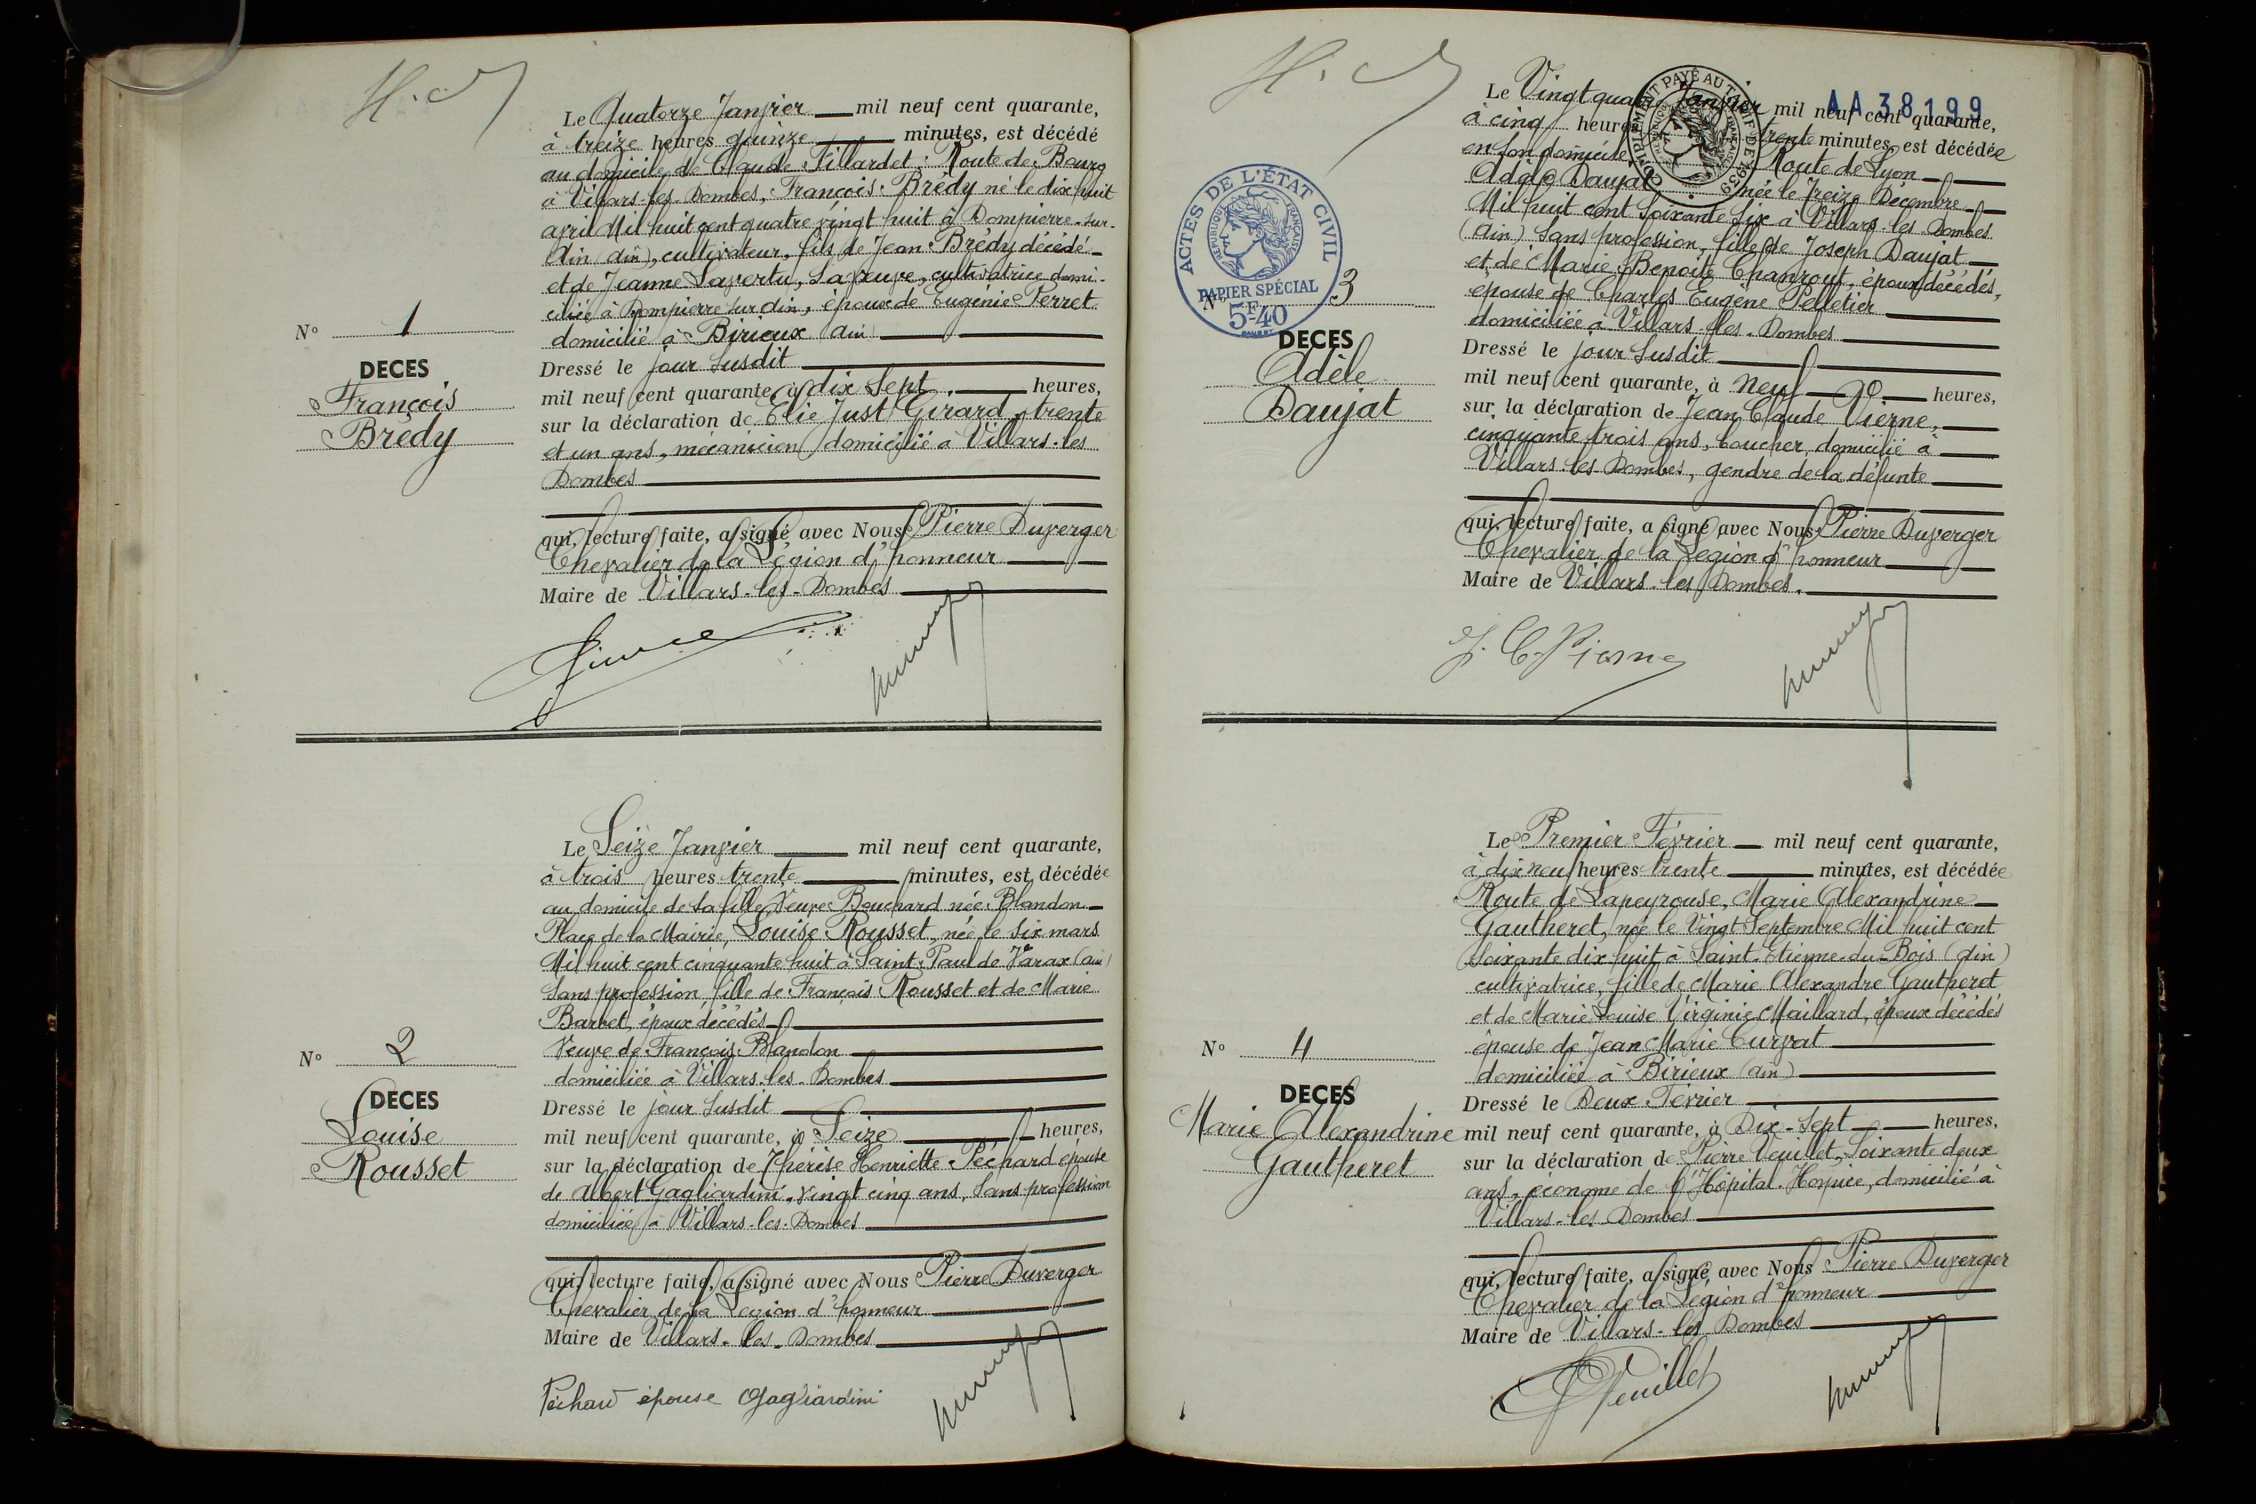 Le Quatorze Janvier mil neuf cent quarante,
à treize heures quinze minutes, est décédé
au domicile de Claude Tillardet Route de Bourg
à Villars-les-Dombes, François Brédy né le dix huit
avril Mil huit cent quatre vingt huit à Dompierre-sur-
Ain (Ain), cultivateur, fils de Jean Brédy décédé
et de Jeanne Lavertu, sa veuve, cultivatrice domi-
ciliée à Dompierre sur Ain, époux de Eugénie Perret
domicilié à Birieux (Ain)
N° 1
DECES
François
Brédy
Dressé le jour susdit
mil neuf cent quarante, à dix sept heures,
sur la déclaration de Elie Just Girard, trente
et un ans, mécanicien domicilié à Villars-les
Dombes
qui, lecture faite, a signé avec Nous Pierre Duverger
Chevalier de la Légion d'honneur
Maire de Villars-les-Dombes
Le Seize Janvier mil neuf cent quarante,
à trois heures trente minutes, est décédée
au domicile de sa fille Veuve Bouchard née Blandon
Place de la Mairie, Louise Rousset, née le six mars
Mil huit cent cinquante huit à Saint-Paul de Varax (Ain)
sans profession, fille de François Rousset et de Marie
Barbet, époux décédés
Veuve de François Blandon
domiciliée à Villars-les-Dombes
N° 2
DECES
Louise
Rousset
Dressé le jour susdit
mil neuf cent quarante, à Seize heures,
sur la déclaration de Thérèse Henriette Péchard épouse
de Albert Gagliardini, vingt cinq ans, sans profession
domiciliée à Villars-les-Dombes
qui, lecture faite, a signé avec Nous Pierre Duverger
Chevalier de la Légion d'honneur
Maire de Villars-les-Dombes
Péchard épouse Gagliardini
AA 38199
COMPLÉMENT PAYÉ AU TARIF DE 1939
Le Vingt quatre Janvier mil neuf cent quarante,
à cinq heures trente minutes, est décédée
en son domicile Route de Lyon
Adèle Daujat née le treize Décembre
Mil huit cent soixante six à Villars-les-Dombes
(Ain) sans profession, fille de Joseph Daujat
et de Marie Benoite Chanrout, époux décédés,
épouse de Charles Eugène Pelletier
domiciliée à Villars-les-Dombes
ACTES DE L'ÉTAT CIVIL
RÉPUBLIQUE FRANÇAISE
PAPIER SPÉCIAL
5F40
N° 3
DECES
Adèle
Daujat
Dressé le jour susdit
mil neuf cent quarante, à neuf heures,
sur la déclaration de Jean Claude Vierne,
cinquante trois ans, boucher, domicilié à
Villars-les-Dombes, gendre de la défunte
qui, lecture faite, a signé avec Nous Pierre Duverger
Chevalier de la Légion d'honneur
Maire de Villars-les-Dombes.
J. C. Vierne
Le Premier Février mil neuf cent quarante,
à dix neuf heures trente minutes, est décédée
Route de Lapeyrouse, Marie Alexandrine
Gautheret, née le Vingt Septembre Mil huit cent
soixante dix huit à Saint-Etienne-du-Bois (Ain)
cultivatrice, fille de Marie Alexandre Gautheret
et de Marie Louise Virginie Maillard, époux décédés
épouse de Jean Marie Curvat
domiciliée à Birieux (Ain)
N° 4
DECES
Marie Alexandrine
Gautheret
Dressé le Deux Février
mil neuf cent quarante, à Dix-sept heures,
sur la déclaration de Pierre Veuillet, soixante deux
ans, économe de l'Hôpital-Hospice, domicilié à
Villars-les-Dombes
qui, lecture faite, a signé avec Nous Pierre Duverger
Chevalier de la Légion d'honneur
Maire de Villars-les-Dombes
Veuillet